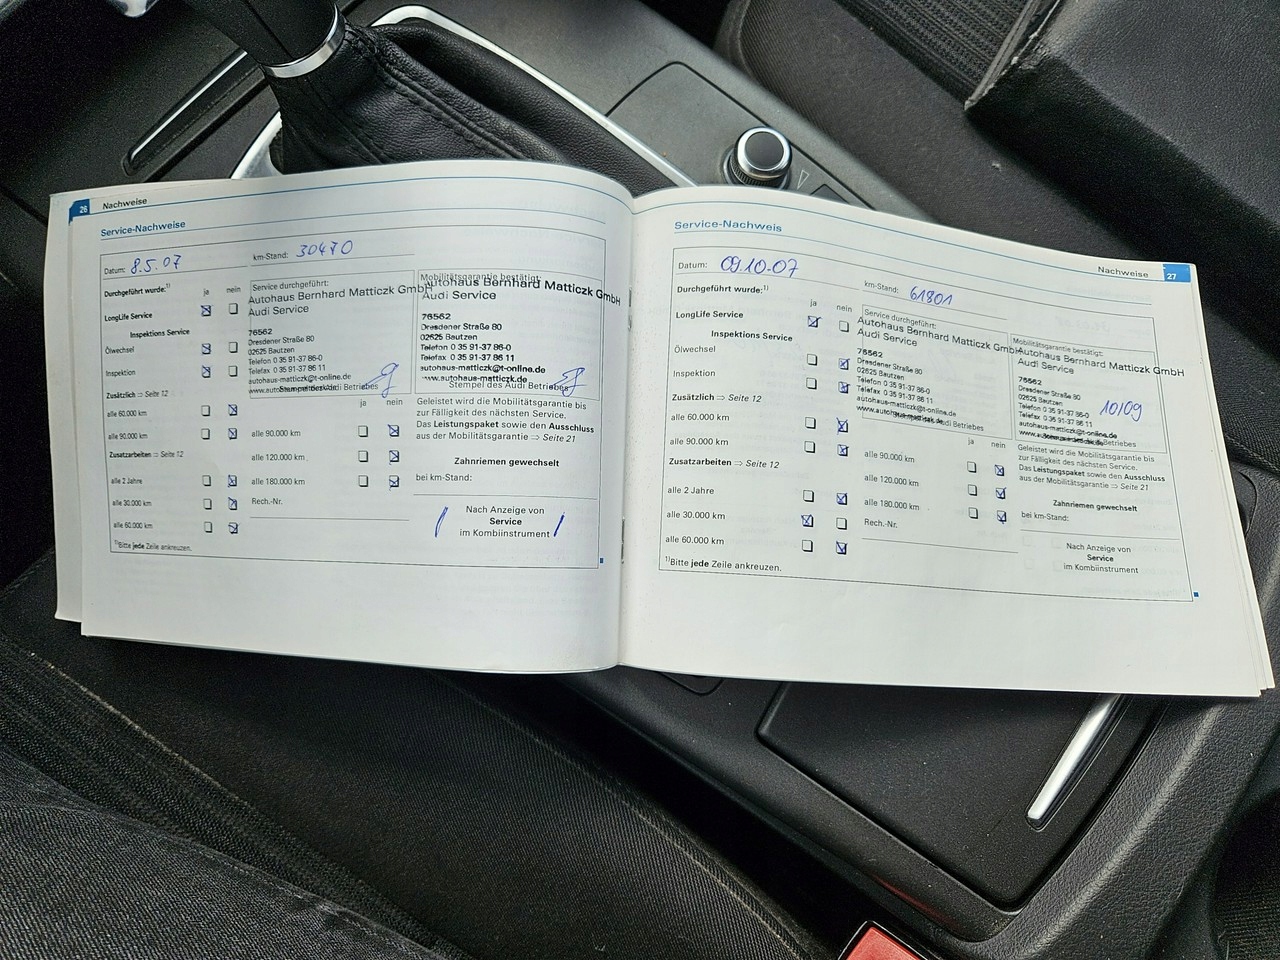 26 Nachweise
Service-Nachweise
Datum: 8.5.07
km-Stand: 30470
Durchgeführt wurde:¹⁾ ja nein
LongLife Service
Inspektions Service
Ölwechsel
Inspektion
Zusätzlich ⇒ Seite 12
alle 60.000 km
alle 90.000 km
Zusatzarbeiten ⇒ Seite 12
alle 2 Jahre
alle 30.000 km
alle 60.000 km
¹⁾Bitte jede Zeile ankreuzen.
Service durchgeführt:
Autohaus Bernhard Matticzk GmbH
Audi Service
76562
Dresdener Straße 80
02625 Bautzen
Telefon 0 35 91-37 86-0
Telefax 0 35 91-37 86 11
autohaus-matticzk@t-online.de
ja nein
alle 90.000 km
alle 120.000 km
alle 180.000 km
Rech.-Nr.
Mobilitätsgarantie bestätigt:
Autohaus Bernhard Matticzk GmbH
Audi Service
76562
Dresdener Straße 80
02625 Bautzen
Telefon 0 35 91-37 86-0
Telefax 0 35 91-37 86 11
autohaus-matticzk@t-online.de
www.autohaus-matticzk.de
Stempel des Audi Betriebes
Geleistet wird die Mobilitätsgarantie bis
zur Fälligkeit des nächsten Service.
Das Leistungspaket sowie den Ausschluss
aus der Mobilitätsgarantie ⇒ Seite 21
Zahnriemen gewechselt
bei km-Stand:
Nach Anzeige von
Service
im Kombiinstrument
Nachweise 27
Service-Nachweis
Datum: 09.10.07
km-Stand: 61801
Durchgeführt wurde:¹⁾ ja nein
LongLife Service
Inspektions Service
Ölwechsel
Inspektion
Zusätzlich ⇒ Seite 12
alle 60.000 km
alle 90.000 km
Zusatzarbeiten ⇒ Seite 12
alle 2 Jahre
alle 30.000 km
alle 60.000 km
¹⁾Bitte jede Zeile ankreuzen.
Service durchgeführt:
Autohaus Bernhard Matticzk GmbH
Audi Service
76562
Dresdener Straße 80
02625 Bautzen
Telefon 0 35 91-37 86-0
Telefax 0 35 91-37 86 11
autohaus-matticzk@t-online.de
ja nein
alle 90.000 km
alle 120.000 km
alle 180.000 km
Rech.-Nr.
Mobilitätsgarantie bestätigt:
Autohaus Bernhard Matticzk GmbH
Audi Service
76562
Dresdener Straße 80
02625 Bautzen
Telefon 0 35 91-37 86-0
Telefax 0 35 91-37 86 11
autohaus-matticzk@t-online.de
10/09
Geleistet wird die Mobilitätsgarantie bis
zur Fälligkeit des nächsten Service.
Das Leistungspaket sowie den Ausschluss
aus der Mobilitätsgarantie ⇒ Seite 21
Zahnriemen gewechselt
bei km-Stand:
Nach Anzeige von
Service
im Kombiinstrument